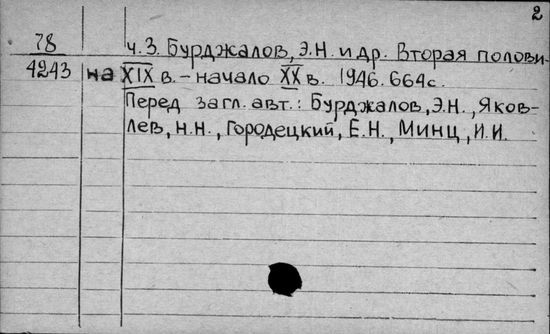 2
78 ч. 3. Бурджалов, Э.Н. и др. Вторая полови-
4243 на XIX в. - начало XX в. 1946. 664 с.
Перед загл. авт.: Бурджалов, Э.Н., Яков-
лев, Н.Н., Городецкий, Е.Н., Минц, И.И.